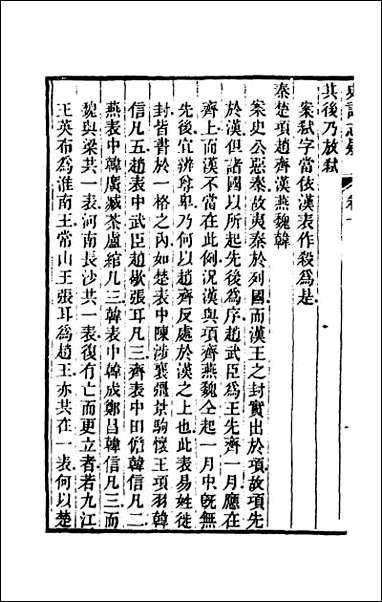 史記志疑　卷十
其後乃放弒
案弒字當依漢表作殺爲是
秦楚項趙齊漢燕魏韓
案史公惡秦故夷秦於列國而漢王之封實出於項故項先
於漢但諸國以所起先後爲序趙武臣爲王先齊一月應在
齊上而漢不當在此例況漢與項齊燕魏仝起一月中旣無
先後宜辨尊卑乃何以趙齊反處於漢之上也此表易姓徙
封皆書於一格之內如楚表中陳涉襄彊景駒懷王項羽韓
信凡五趙表中武臣趙歇張耳凡三齊表中田儋韓信凡二
燕表中韓廣臧荼盧綰凡三韓表中韓成鄭昌韓信凡三而
魏與梁共一表河南長沙共一表復有亡而更立者若九江
王英布爲淮南王常山王張耳爲趙王亦共在一表何以楚